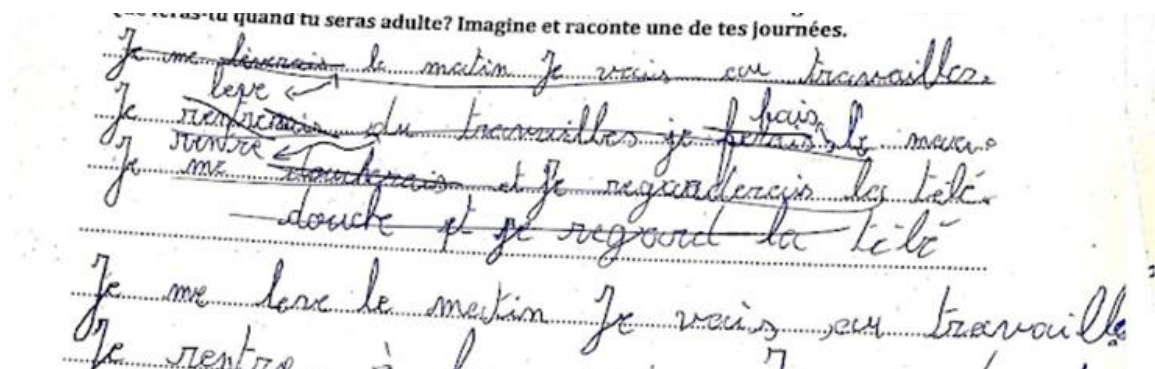 Que feras-tu quand tu seras adulte? Imagine et raconte une de tes journées.
Je me leverais le matin Je vais au travailler.
leve
Je rentrerais du travailles je ferais le
fais
rentre
Je me doucherais et Je regarderais la télé.
douche et je regard la télé
Je me leve le matin Je vais au travaille
Je rentre à